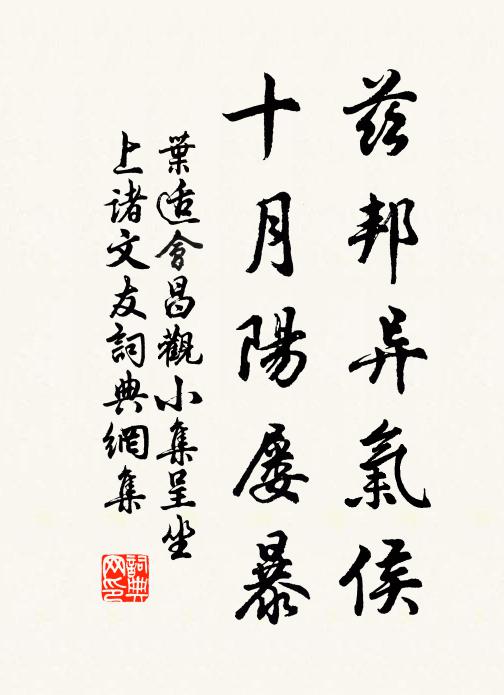 茲邦异氣侯
十月陽屢暴
葉适會昌觀小集呈坐
上諸文友詞典網集
詞典
网印